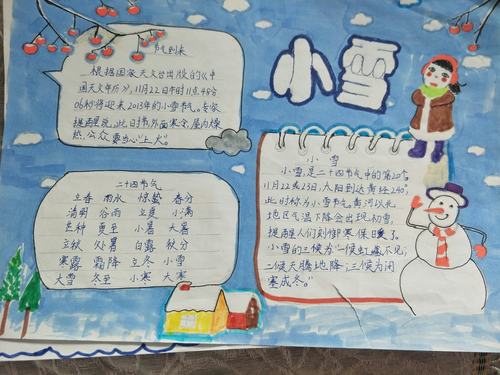 小雪
节气到来
根据国家天文台出版的《中
国天文年历》,11月22日午时11点48分
06秒将迎来2013年的小雪节气。专家
提醒说,此日提外面寒冷,屋内燥
热,公众要当心"上火"。
二十四节气
立春 雨水 惊蛰 春分
清明 谷雨 立夏 小满
芒种 夏至 小暑 大暑
立秋 处暑 白露 秋分
寒露 霜降 立冬 小雪
大雪 冬至 小寒 大寒
小 雪
小雪,是二十四节气中的第20个
11月22或23日,太阳到达黄经240°,
此时称为小雪节气,黄河以北
地区气温下降会出现初雪,
提醒人们到御寒保暖了。
小雪的三候为"一候虹藏不见,
二候天腾地降,三候为闭
塞成冬。"